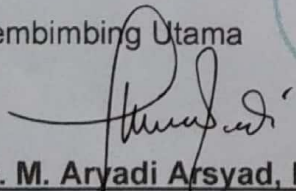 embimbing Utama
. M. Aryadi Arsyad,